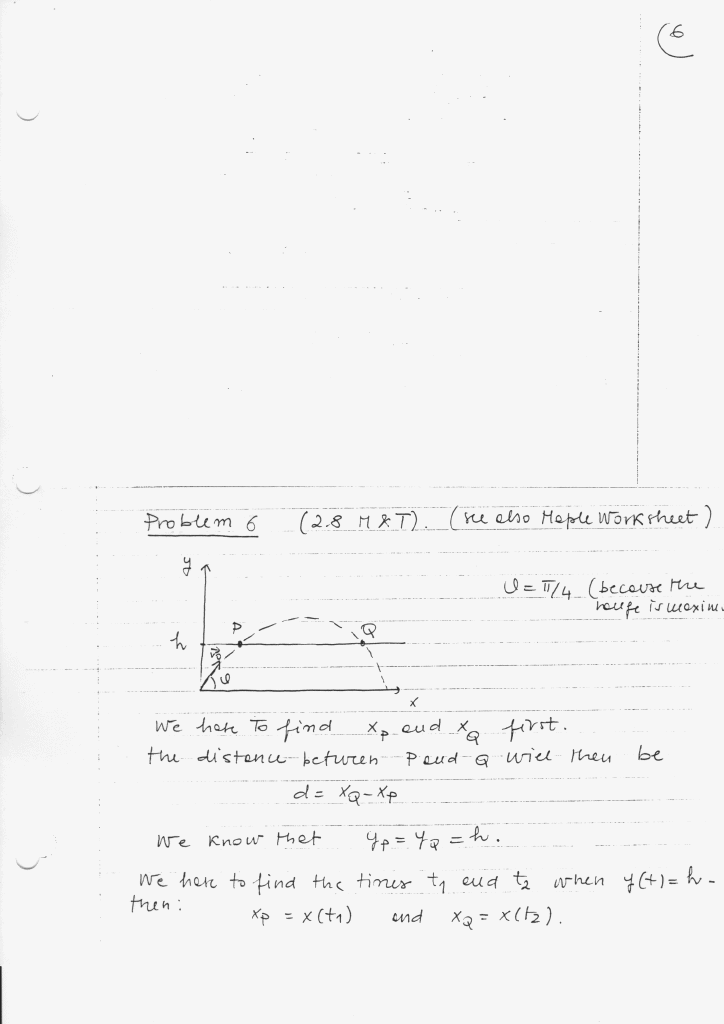 6
Problem 6 (2.8 M & T). (see also Maple Worksheet)
y
θ = π/4 (because the
range is maxim
h P Q
v₀
θ
x
We have To find x_P and x_Q first.
the distance between P and Q will then be
d = x_Q - x_P
We know that y_P = y_Q = h.
We have to find the times t₁ and t₂ when y(t) = h -
then:
x_P = x(t₁) and x_Q = x(t₂).